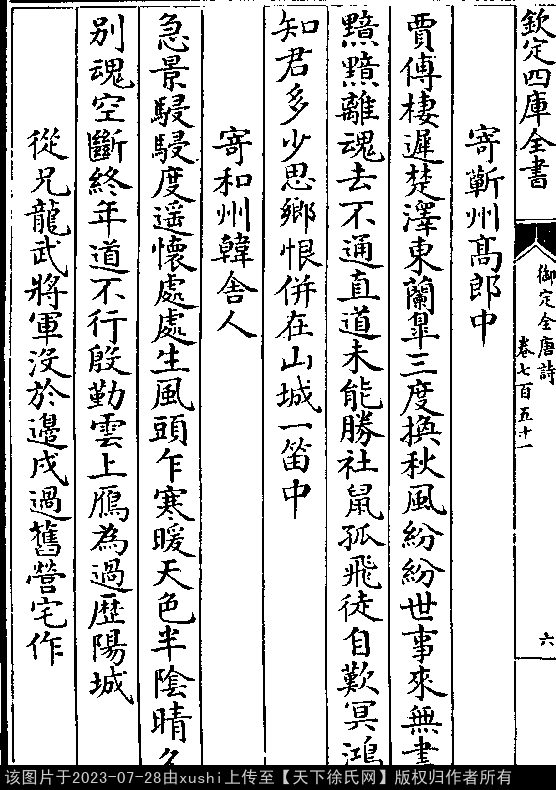 欽定四庫全書
御定全唐詩
卷七百五十一
六
寄蘄州髙郎中
賈傅棲遲楚澤東蘭臯三度換秋風紛紛世事來無盡
黯黯離魂去不通直道未能勝社鼠孤飛徒自歎冥鴻
知君多少思鄉恨併在山城一笛中
寄和州韓舍人
急景駸駸度遥懷處處生風頭乍寒暖天色半陰晴久
别魂空斷終年道不行殷勤雲上鴈為過歷陽城
從兄龍武將軍没於邊戍過舊營宅作
该图片于2023-07-28由xushi上传至【天下徐氏网】版权归作者所有